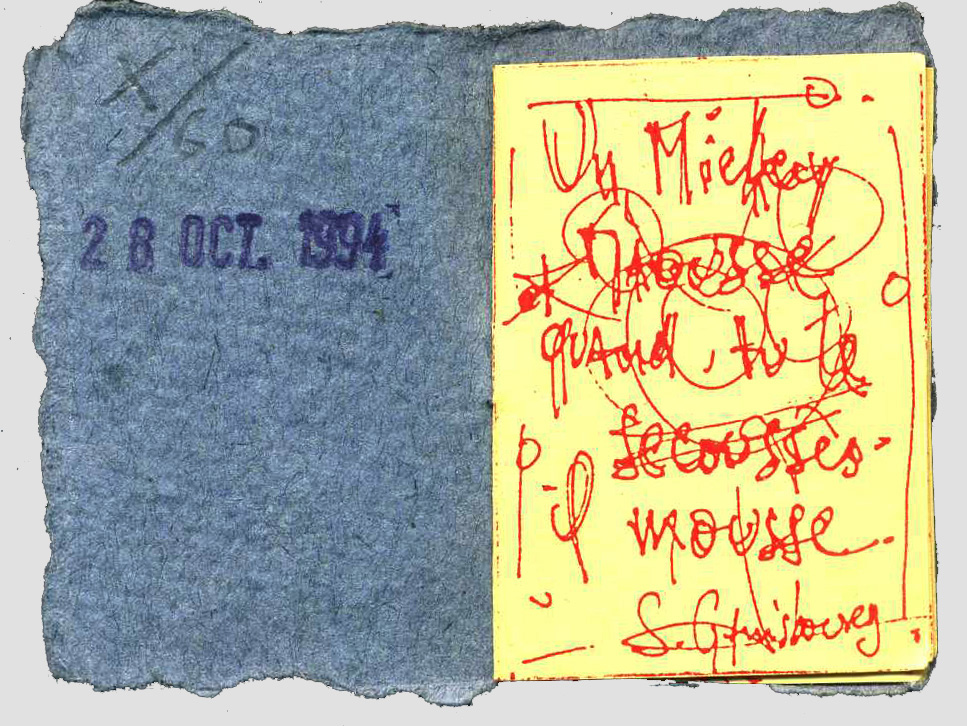 X/60
28 OCT. 1994
Un Mickey
Mousse
et
quand, tu le
secousses
il mousse.
S. Gainsbourg